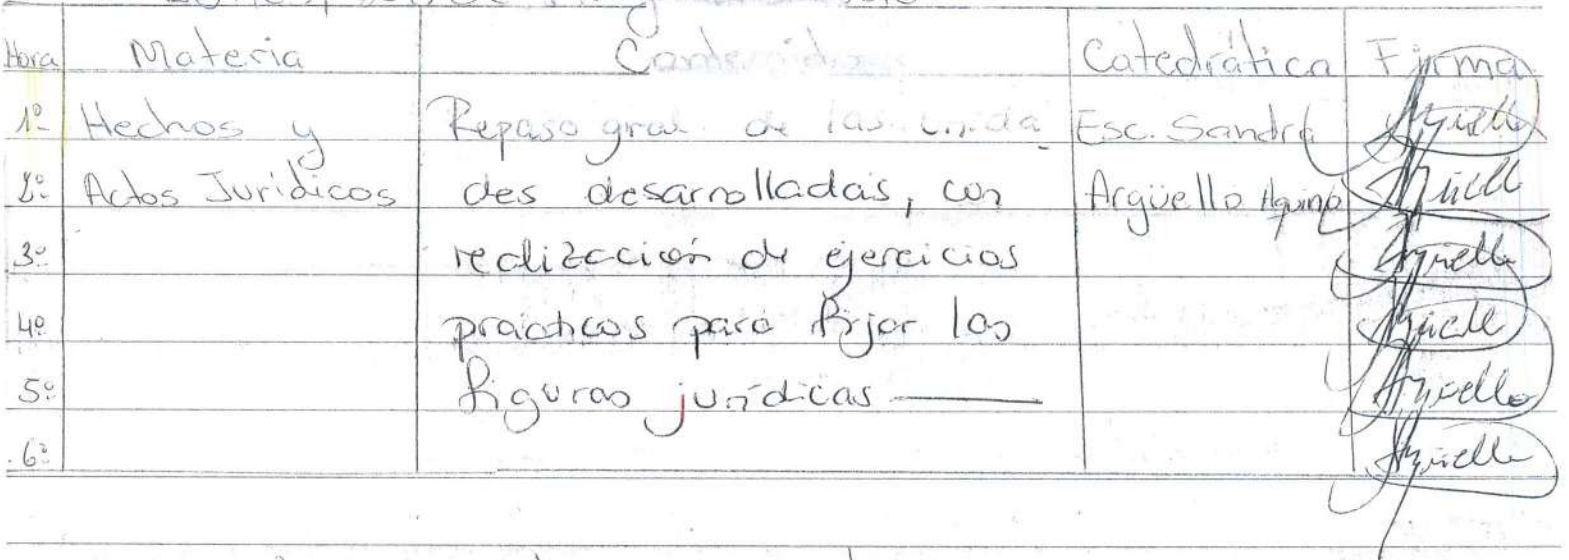 Hora Materia Contenido Catedrática Firma
1º Hechos y Repaso gral. de las unida Esc. Sandra Argüello
2º Actos Jurídicos des desarrolladas, con Argüello Aquino Argüello
3º realización de ejercicios Argüello
4º prácticos para fijar las Argüello
5º figuras jurídicas Argüello
6º Argüello